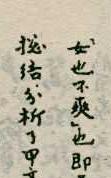 女也不爽」也即
总结分析了甲文